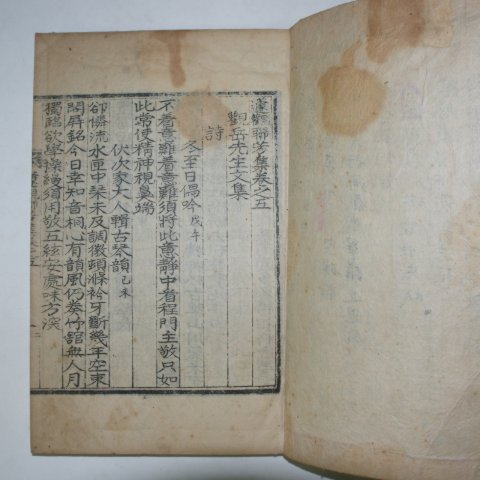 蓬觀聯芳集卷之五
觀岳先生文集
詩
冬至日偶吟 戊午
不着意難着意難須將此意靜中看程門主敬只如
此常使精神視鼻端
伏次家大人輯古琴韻 己未
卻憐流水匣中琴未及調徽頭滌衿牙斷幾年空束
閣屛銘今日幸知音桐心有韻風仍奏竹舘無人月
獨臨欲學操縵須用敬五絃安處味方深